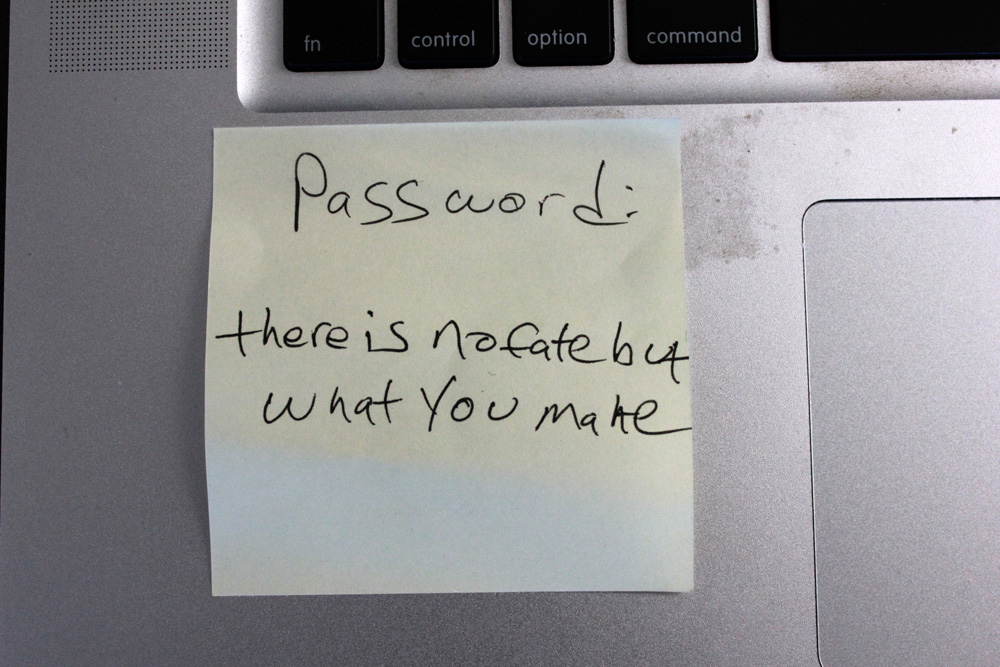 fn control option command
Password:
there is no fate but
what you make